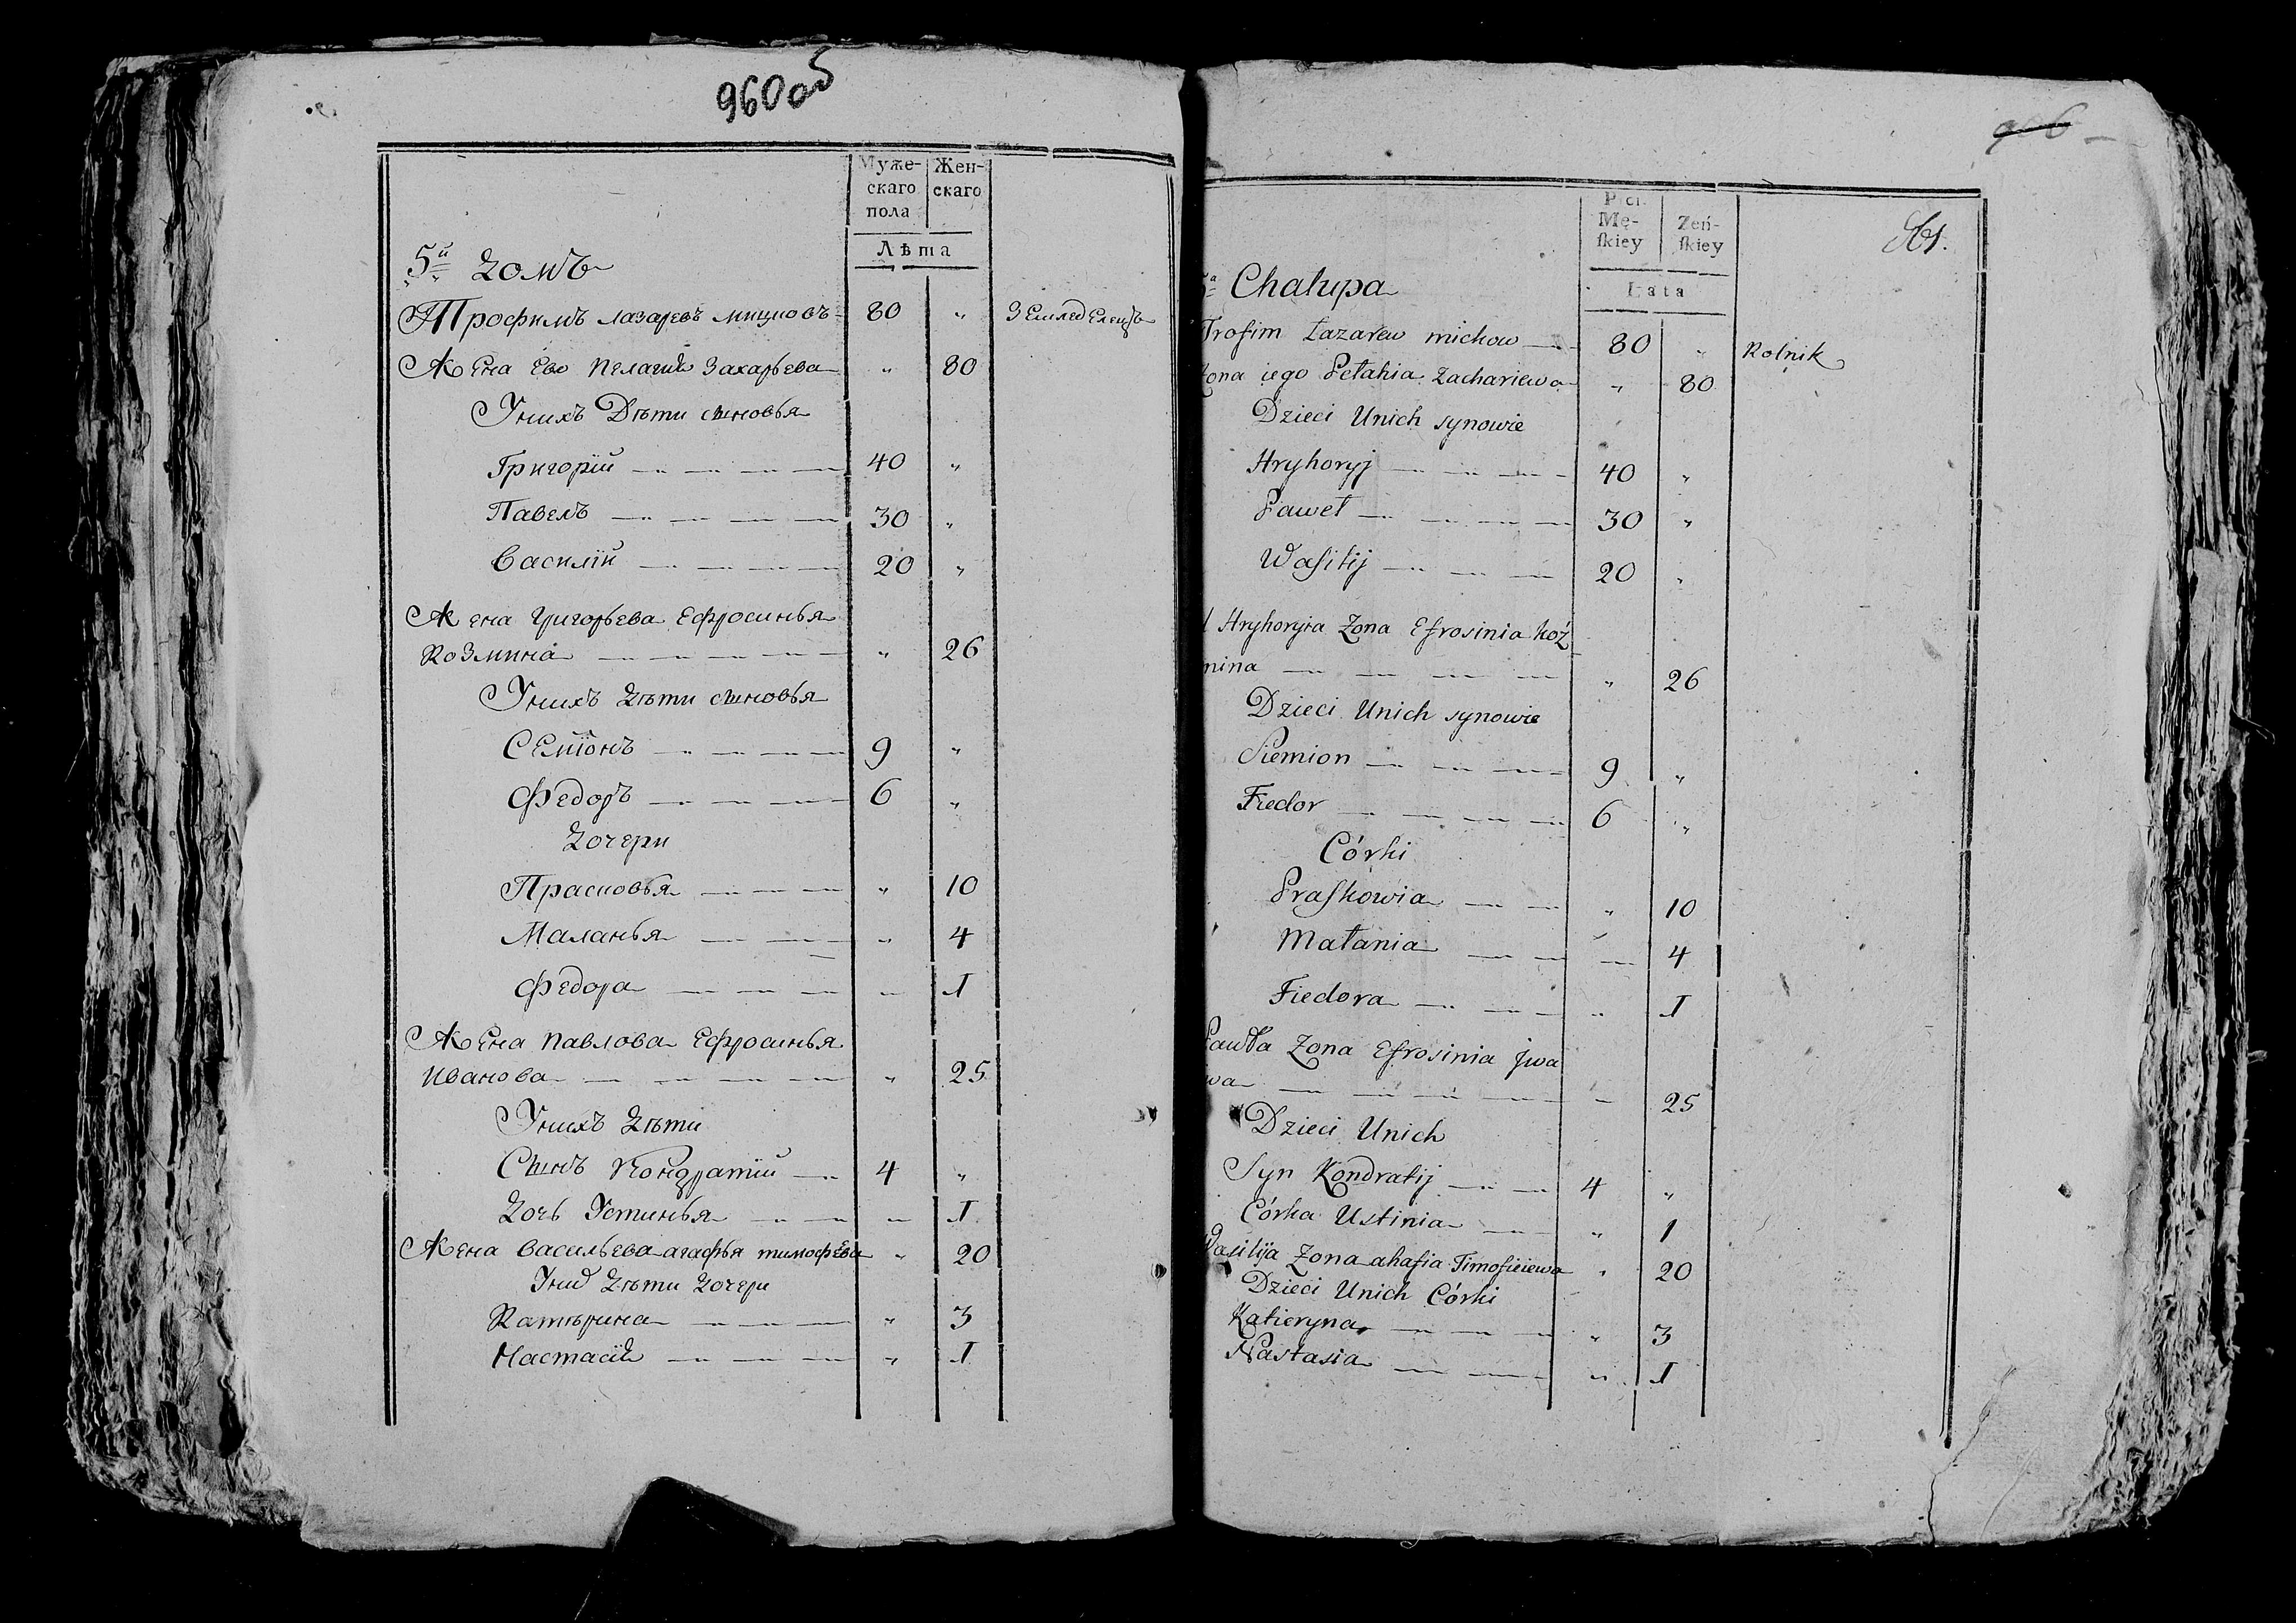 960 об
Муже-
скаго
пола
Жен-
скаго
Лѣта
5й домъ
Трофимъ Лазаревъ мицковъ 80 „ Земледелецъ
Жена Ево Пелагия Захарьева „ 80
Унихъ Дѣти сыновья
Григорій 40 „
Павелъ 30 „
Василій 20 „
Жена Григорьева Ефросинья
Козмина „ 26
Унихъ дѣти сыновья
Семіонъ 9 „
Федоръ 6 „
Дочери
Прасковья „ 10
Маланья „ 4
Федора „ 1
Жена Павлова Ефросинья
Иванова „ 25
Унихъ дѣти
Сынъ Кондратій 4 „
Дочь Устинья „ 1
Жена Васильева агафья тимофева „ 20
Уних дѣти дочери
Катѣрина „ 3
Настасія „ 1
Płci
Mę-
skiey
Żeń-
skiey
Lata
5a Chałupa
Trofim Łazarew michow 80 „ Rolnik
Żona iego Pełahia Zachariewa „ 80
Dzieci Unich synowie
Hryhoryj 40 „
Paweł 30 „
Wasilij 20 „
Hryhoryia Żona Efrosinia Koź
mina „ 26
Dzieci Unich synowie
Siemion 9 „
Fiedor 6 „
Córki
Praskowia „ 10
Małania „ 4
Fiedora „ 1
Pawła Żona Efrosinia Jwa
wa „ 25
Dzieci Unich
Syn Kondratij 4 „
Córka Ustinia „ 1
Wasilija Żona ahafia Timofieiewa „ 20
Dzieci Unich Córki
Katieryna „ 3
Nastasia „ 1